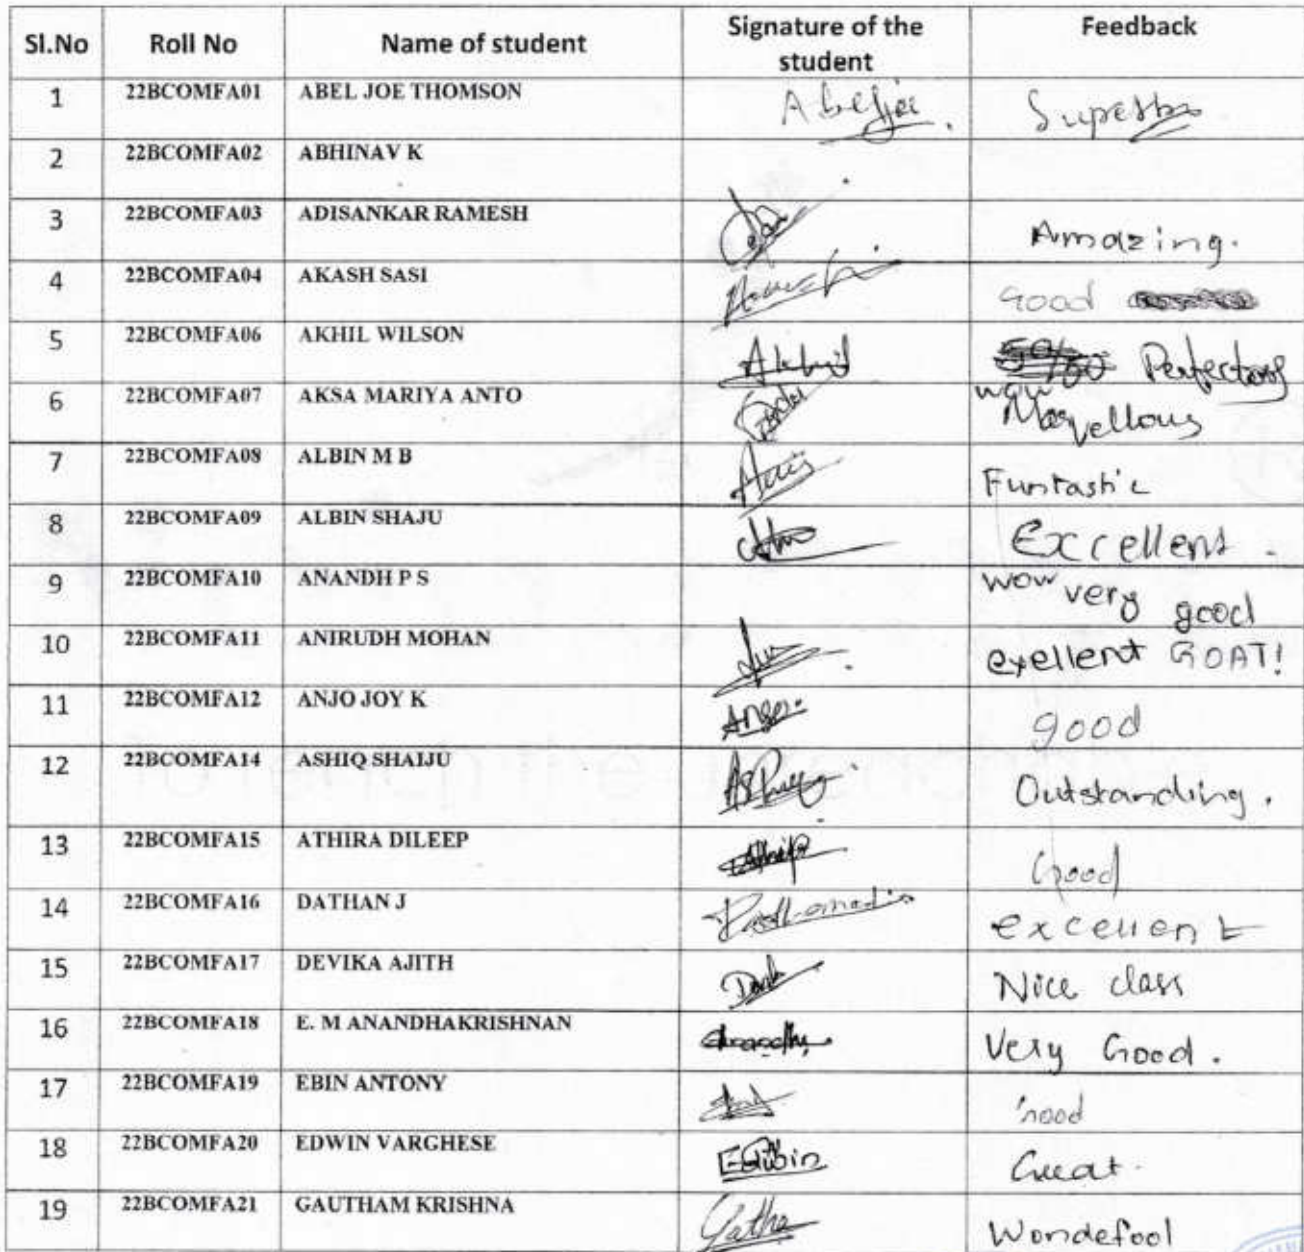 Sl.No Roll No Name of student Signature of the student Feedback
1 22BCOMFA01 ABEL JOE THOMSON Abeljoe
2 22BCOMFA02 ABHINAV K
3 22BCOMFA03 ADISANKAR RAMESH Amazing.
4 22BCOMFA04 AKASH SASI Good
5 22BCOMFA06 AKHIL WILSON Akhil
6 22BCOMFA07 AKSA MARIYA ANTO wow Marvellous
7 22BCOMFA08 ALBIN M B Funtastic
8 22BCOMFA09 ALBIN SHAJU Excellent.
9 22BCOMFA10 ANANDH P S wow very good
10 22BCOMFA11 ANIRUDH MOHAN exellent GOAT!
11 22BCOMFA12 ANJO JOY K good
12 22BCOMFA14 ASHIQ SHAIJU Outstanding.
13 22BCOMFA15 ATHIRA DILEEP Good
14 22BCOMFA16 DATHAN J excellent
15 22BCOMFA17 DEVIKA AJITH Nice class
16 22BCOMFA18 E. M ANANDHAKRISHNAN Very Good.
17 22BCOMFA19 EBIN ANTONY Good
18 22BCOMFA20 EDWIN VARGHESE Great.
19 22BCOMFA21 GAUTHAM KRISHNA Wondefool